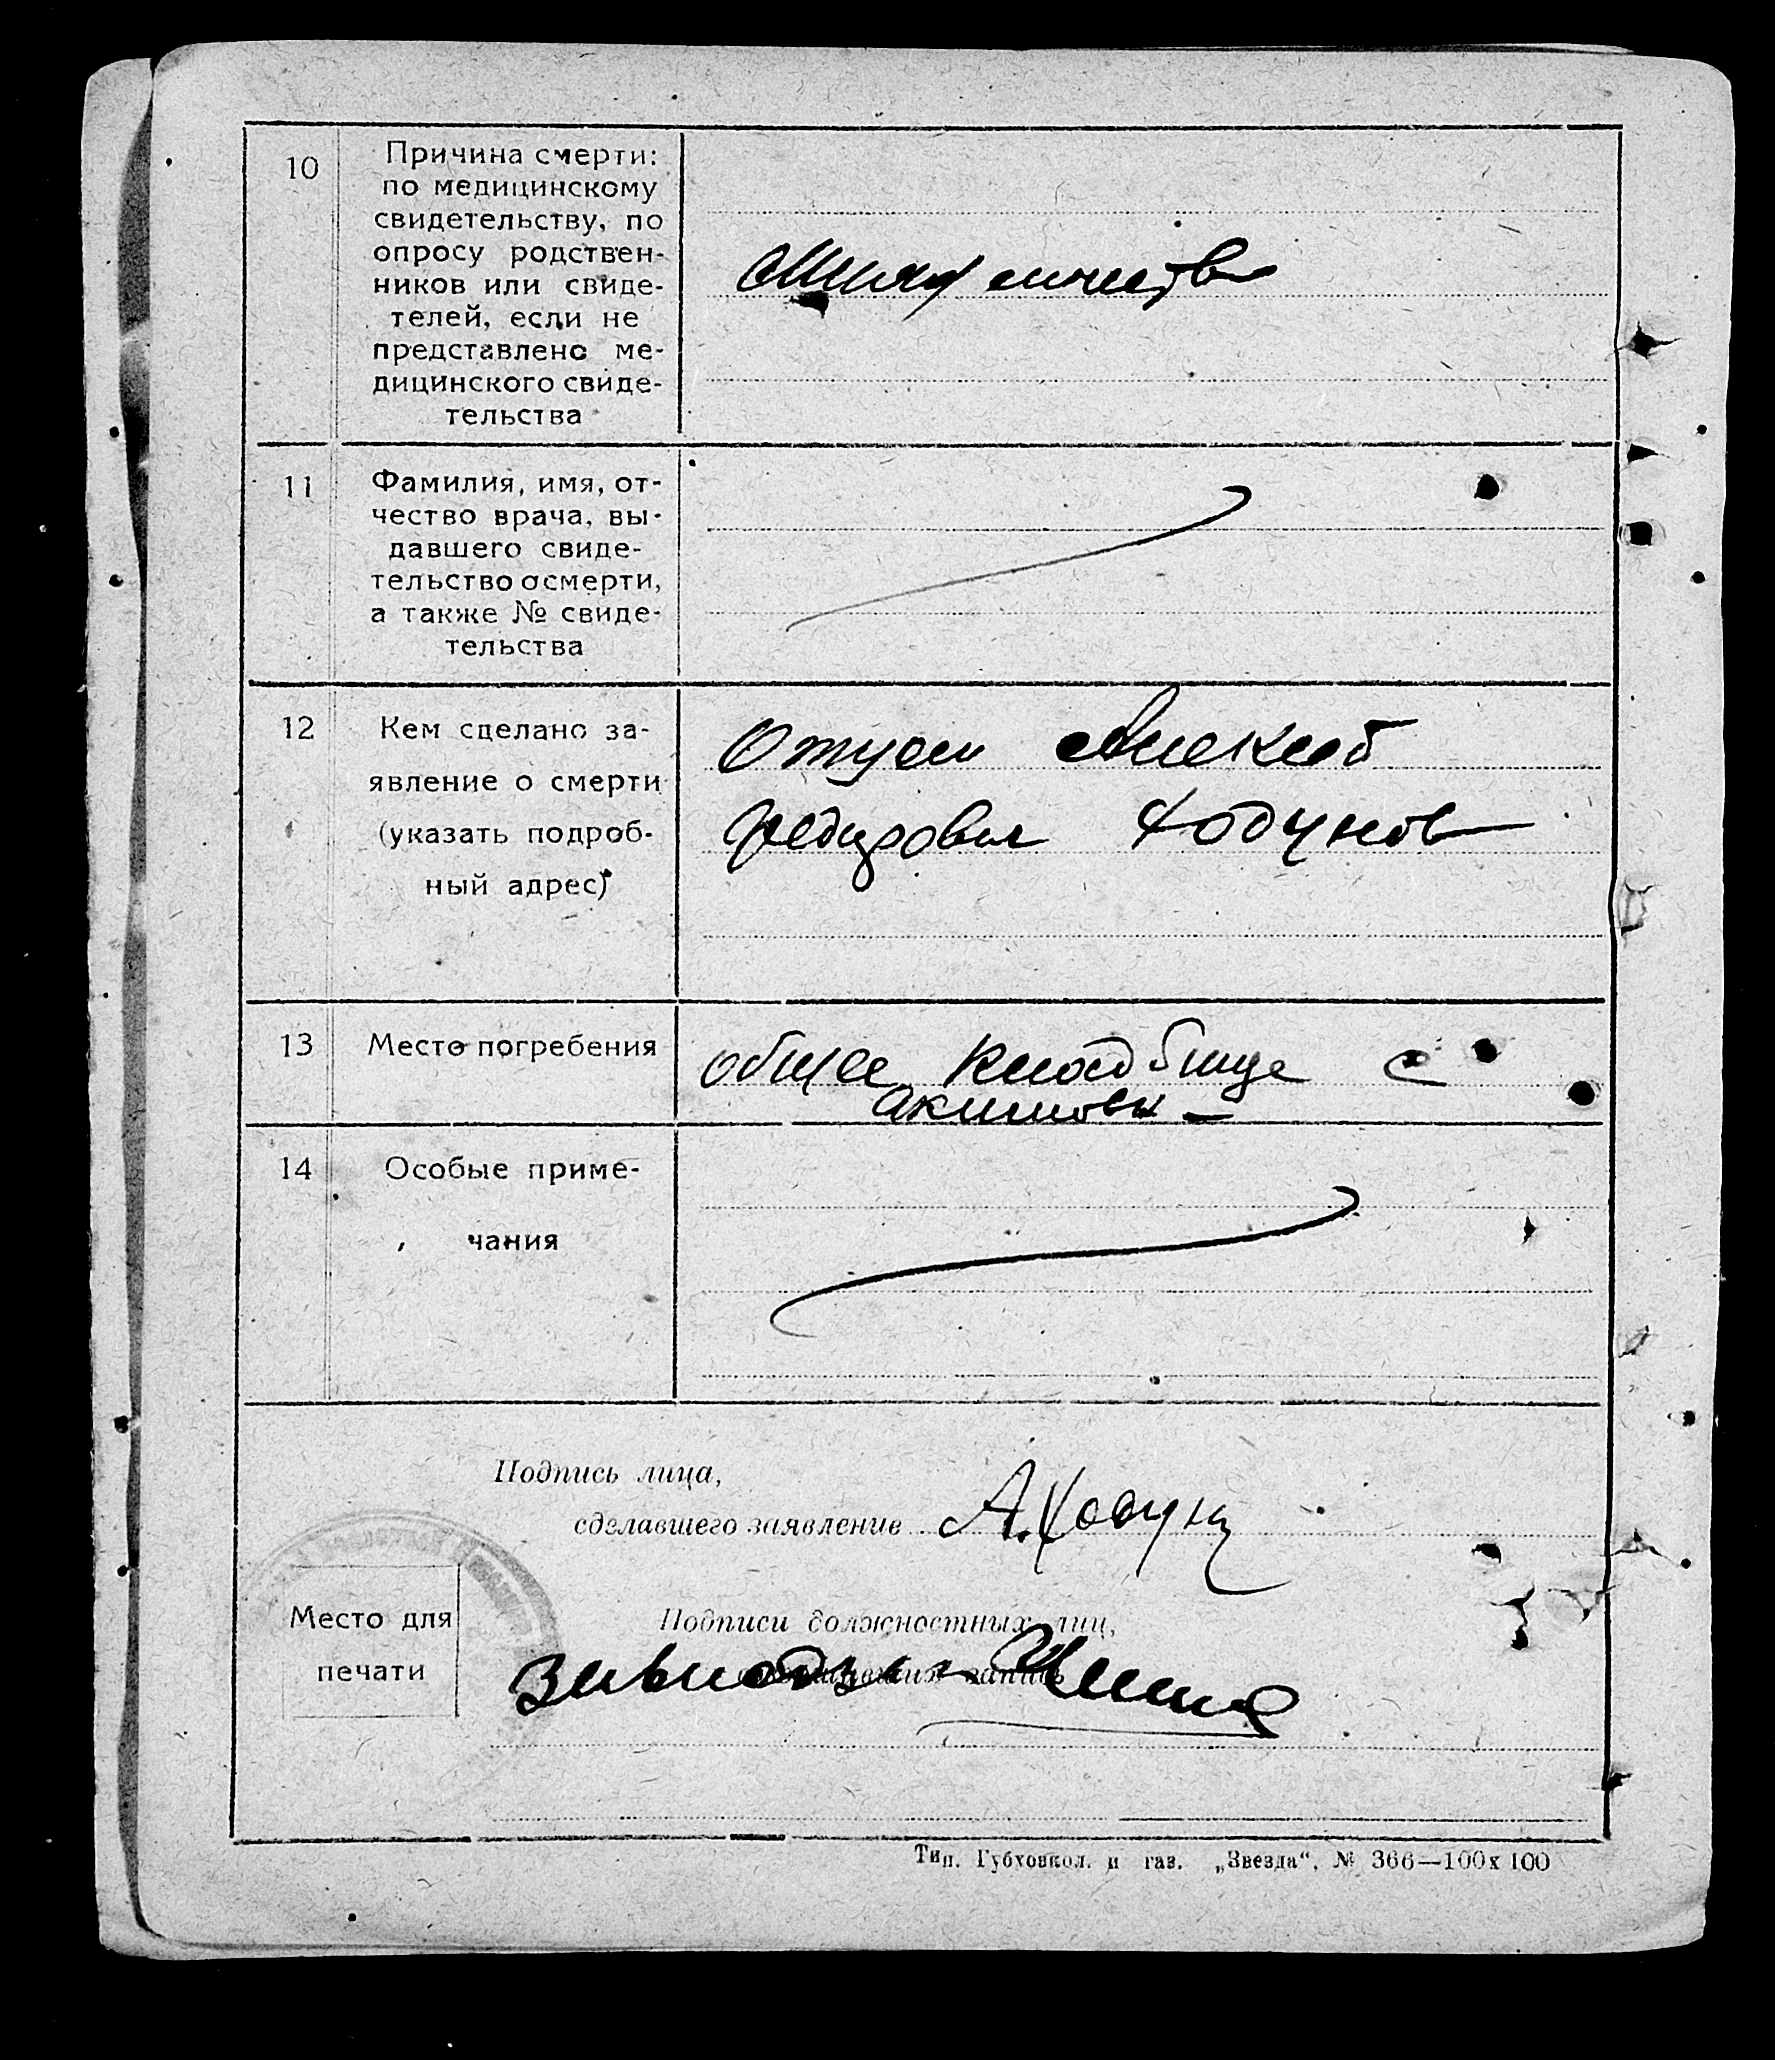 10
Причина смерти:
по медицинскому
свидетельству, по
опросу родствен-
ников или свиде-
телей, если не
представлено ме-
дицинского свиде-
тельства
11
Фамилия, имя, от-
чество врача, вы-
давшего свиде-
тельство о смерти,
а также № свиде-
тельства
12
Кем сделано за-
явление о смерти
(указать подроб-
ный адрес)
Отцом Алексей
Федорович Ходунов
13
Место погребения
общее кладбище с
Акимовка
14
Особые приме-
чания
Подпись лица,
сделавшего заявление А. Ходун
Место для
печати
Подписи должностных лиц,
запись
Тип. Губховкол. и газ. „Звезда“, № 366—100х100